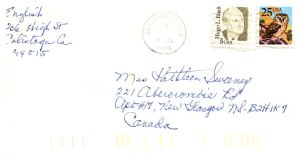 English
206 High St
Calistoga Ca
94515
Hugo L. Black
5¢ USA
25 USA
Miss Kathleen Sweeney
221 Abercrombie Rd
Apt #4, New Glasgow NS B2H 1K7
Canada